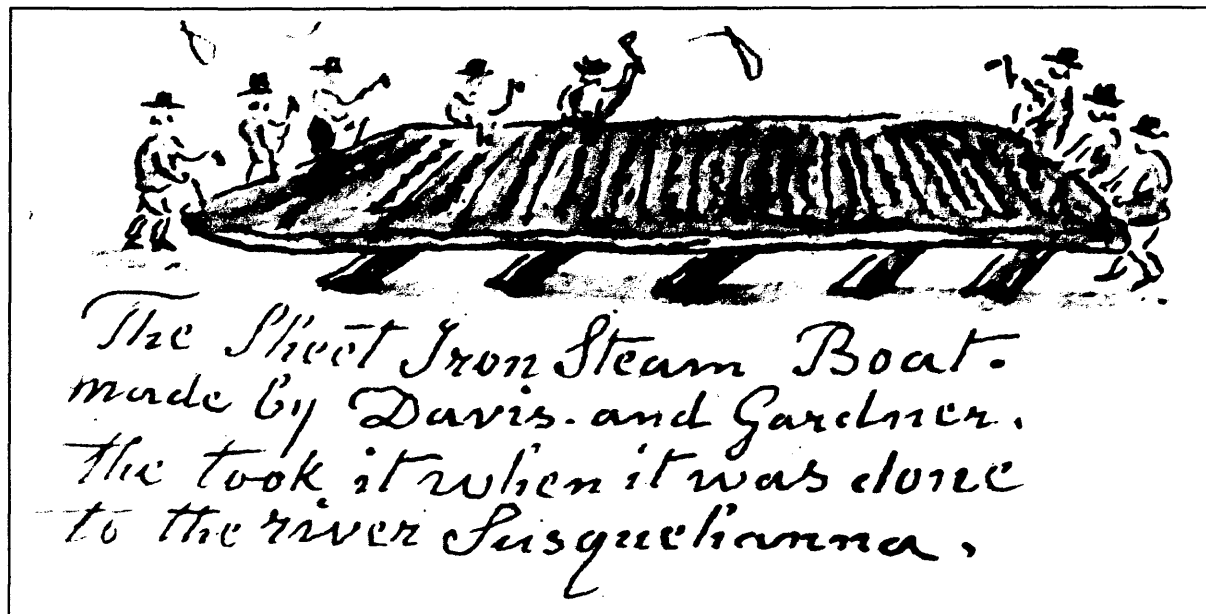 The Sheet Iron Steam Boat.
made by Davis. and Gardner.
the took it when it was done
to the river Susquehanna.